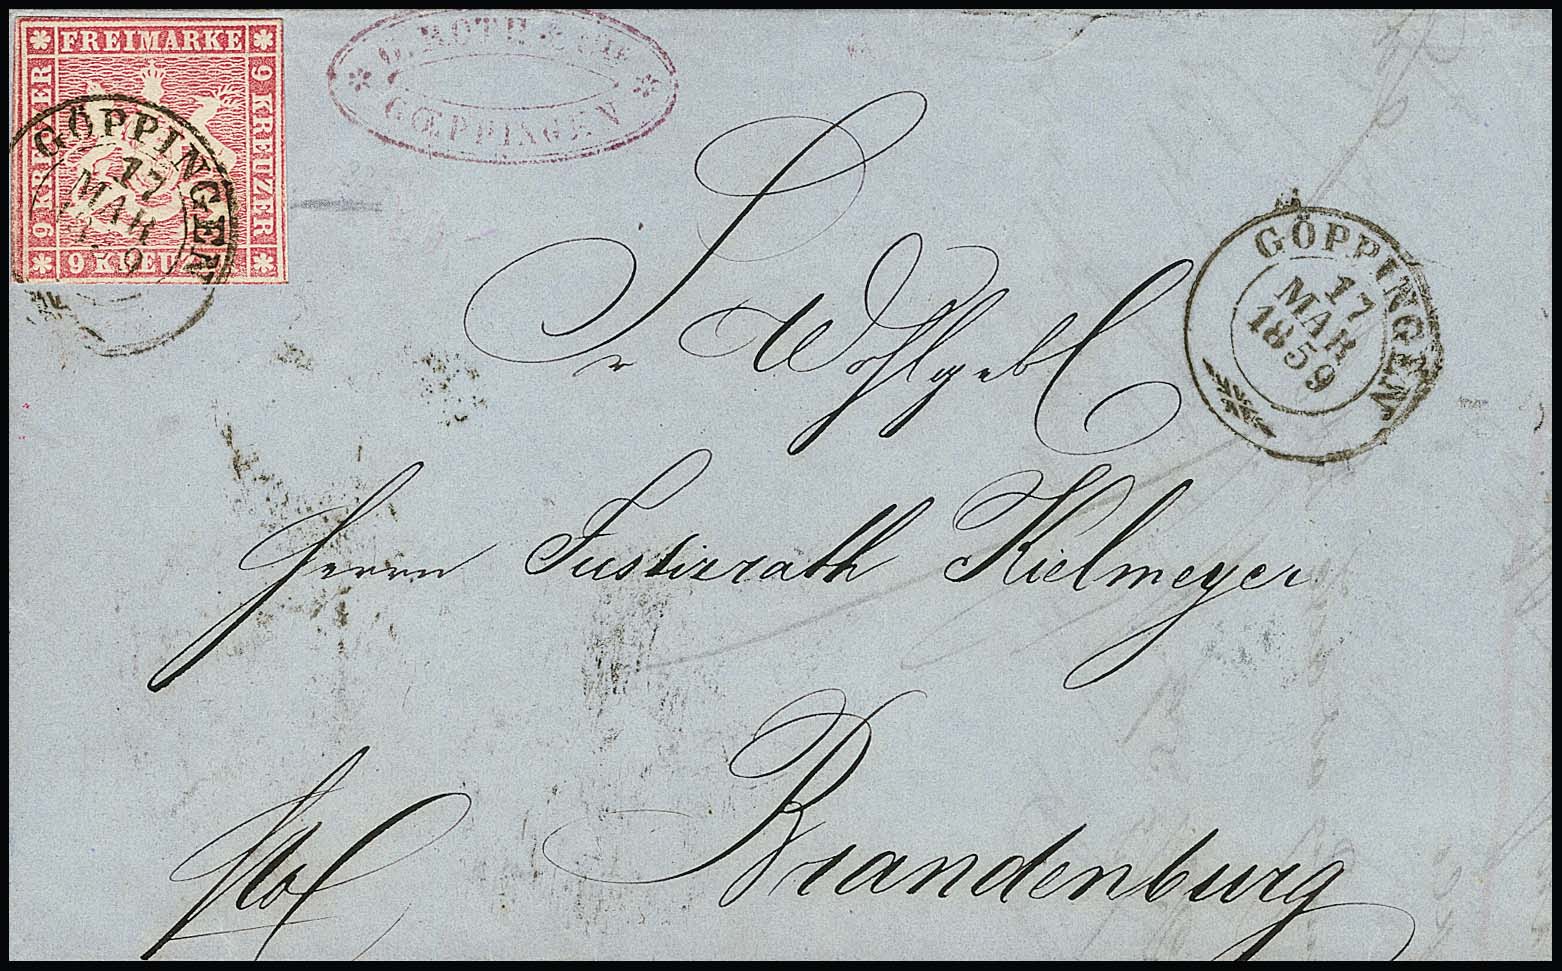 FREIMARKE
9 KREUZER
9 KREUZER
9 KREUZ
GÖPPINGEN
17
MAR
ROTH & CIE
GŒPPINGEN
GÖPPINGEN
17
MAR
1859
Sr Wohlgeb
Herrn Justizrath Kielmeyer
Brandenburg